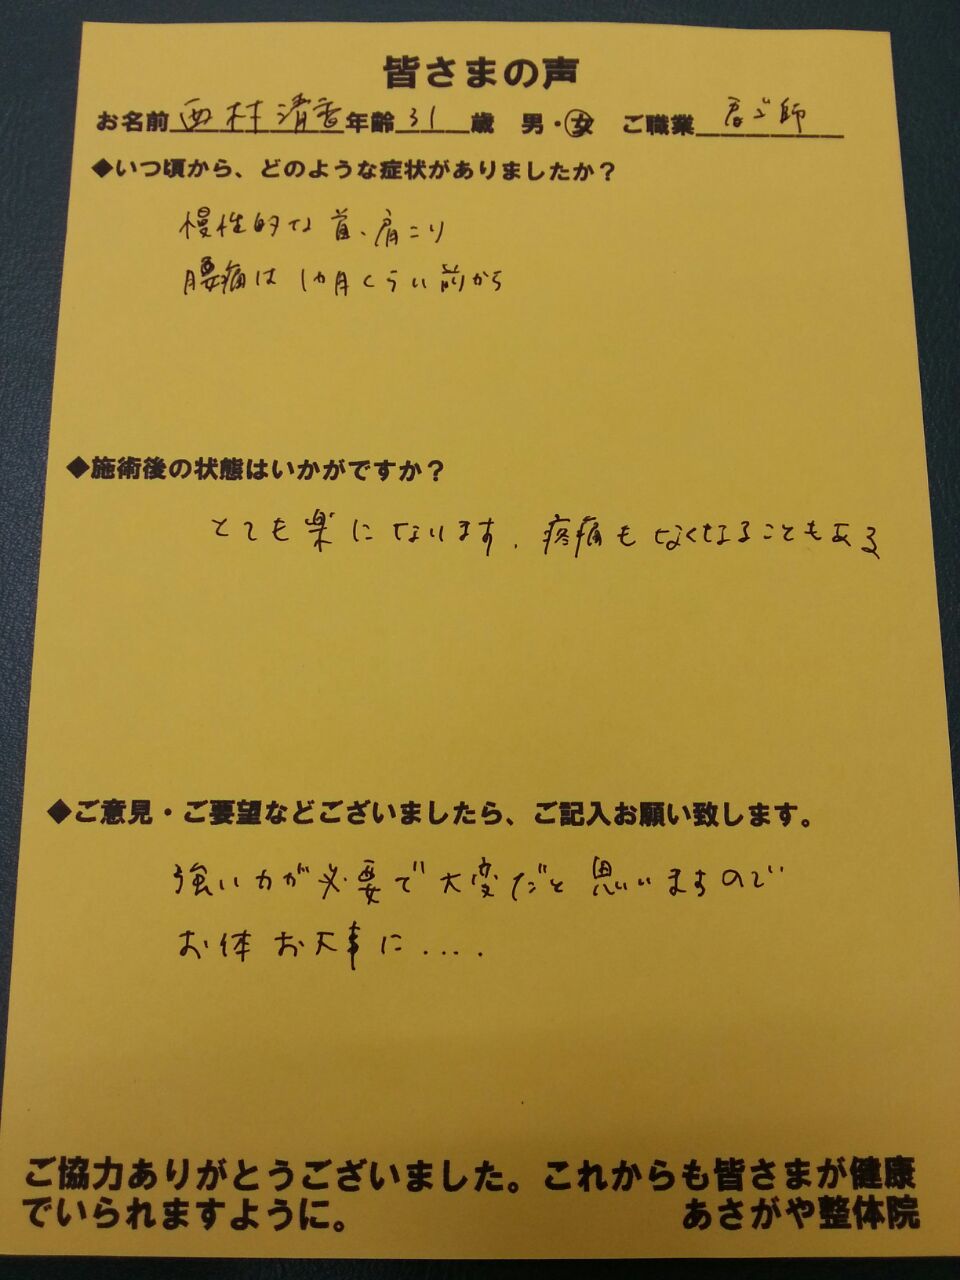 皆さまの声
お名前 西村清香 年齢 31 歳 男・女 ご職業 看ゴ師
◆いつ頃から、どのような症状がありましたか？
慢性的な首、肩こり
腰痛は1カ月くらい前から
◆施術後の状態はいかがですか？
とても楽になります、疼痛もなくなることもある
◆ご意見・ご要望などございましたら、ご記入お願い致します。
強い力が必要で大変だと思いますので
お体お大事に....
ご協力ありがとうございました。これからも皆さまが健康
でいられますように。 あさがや整体院